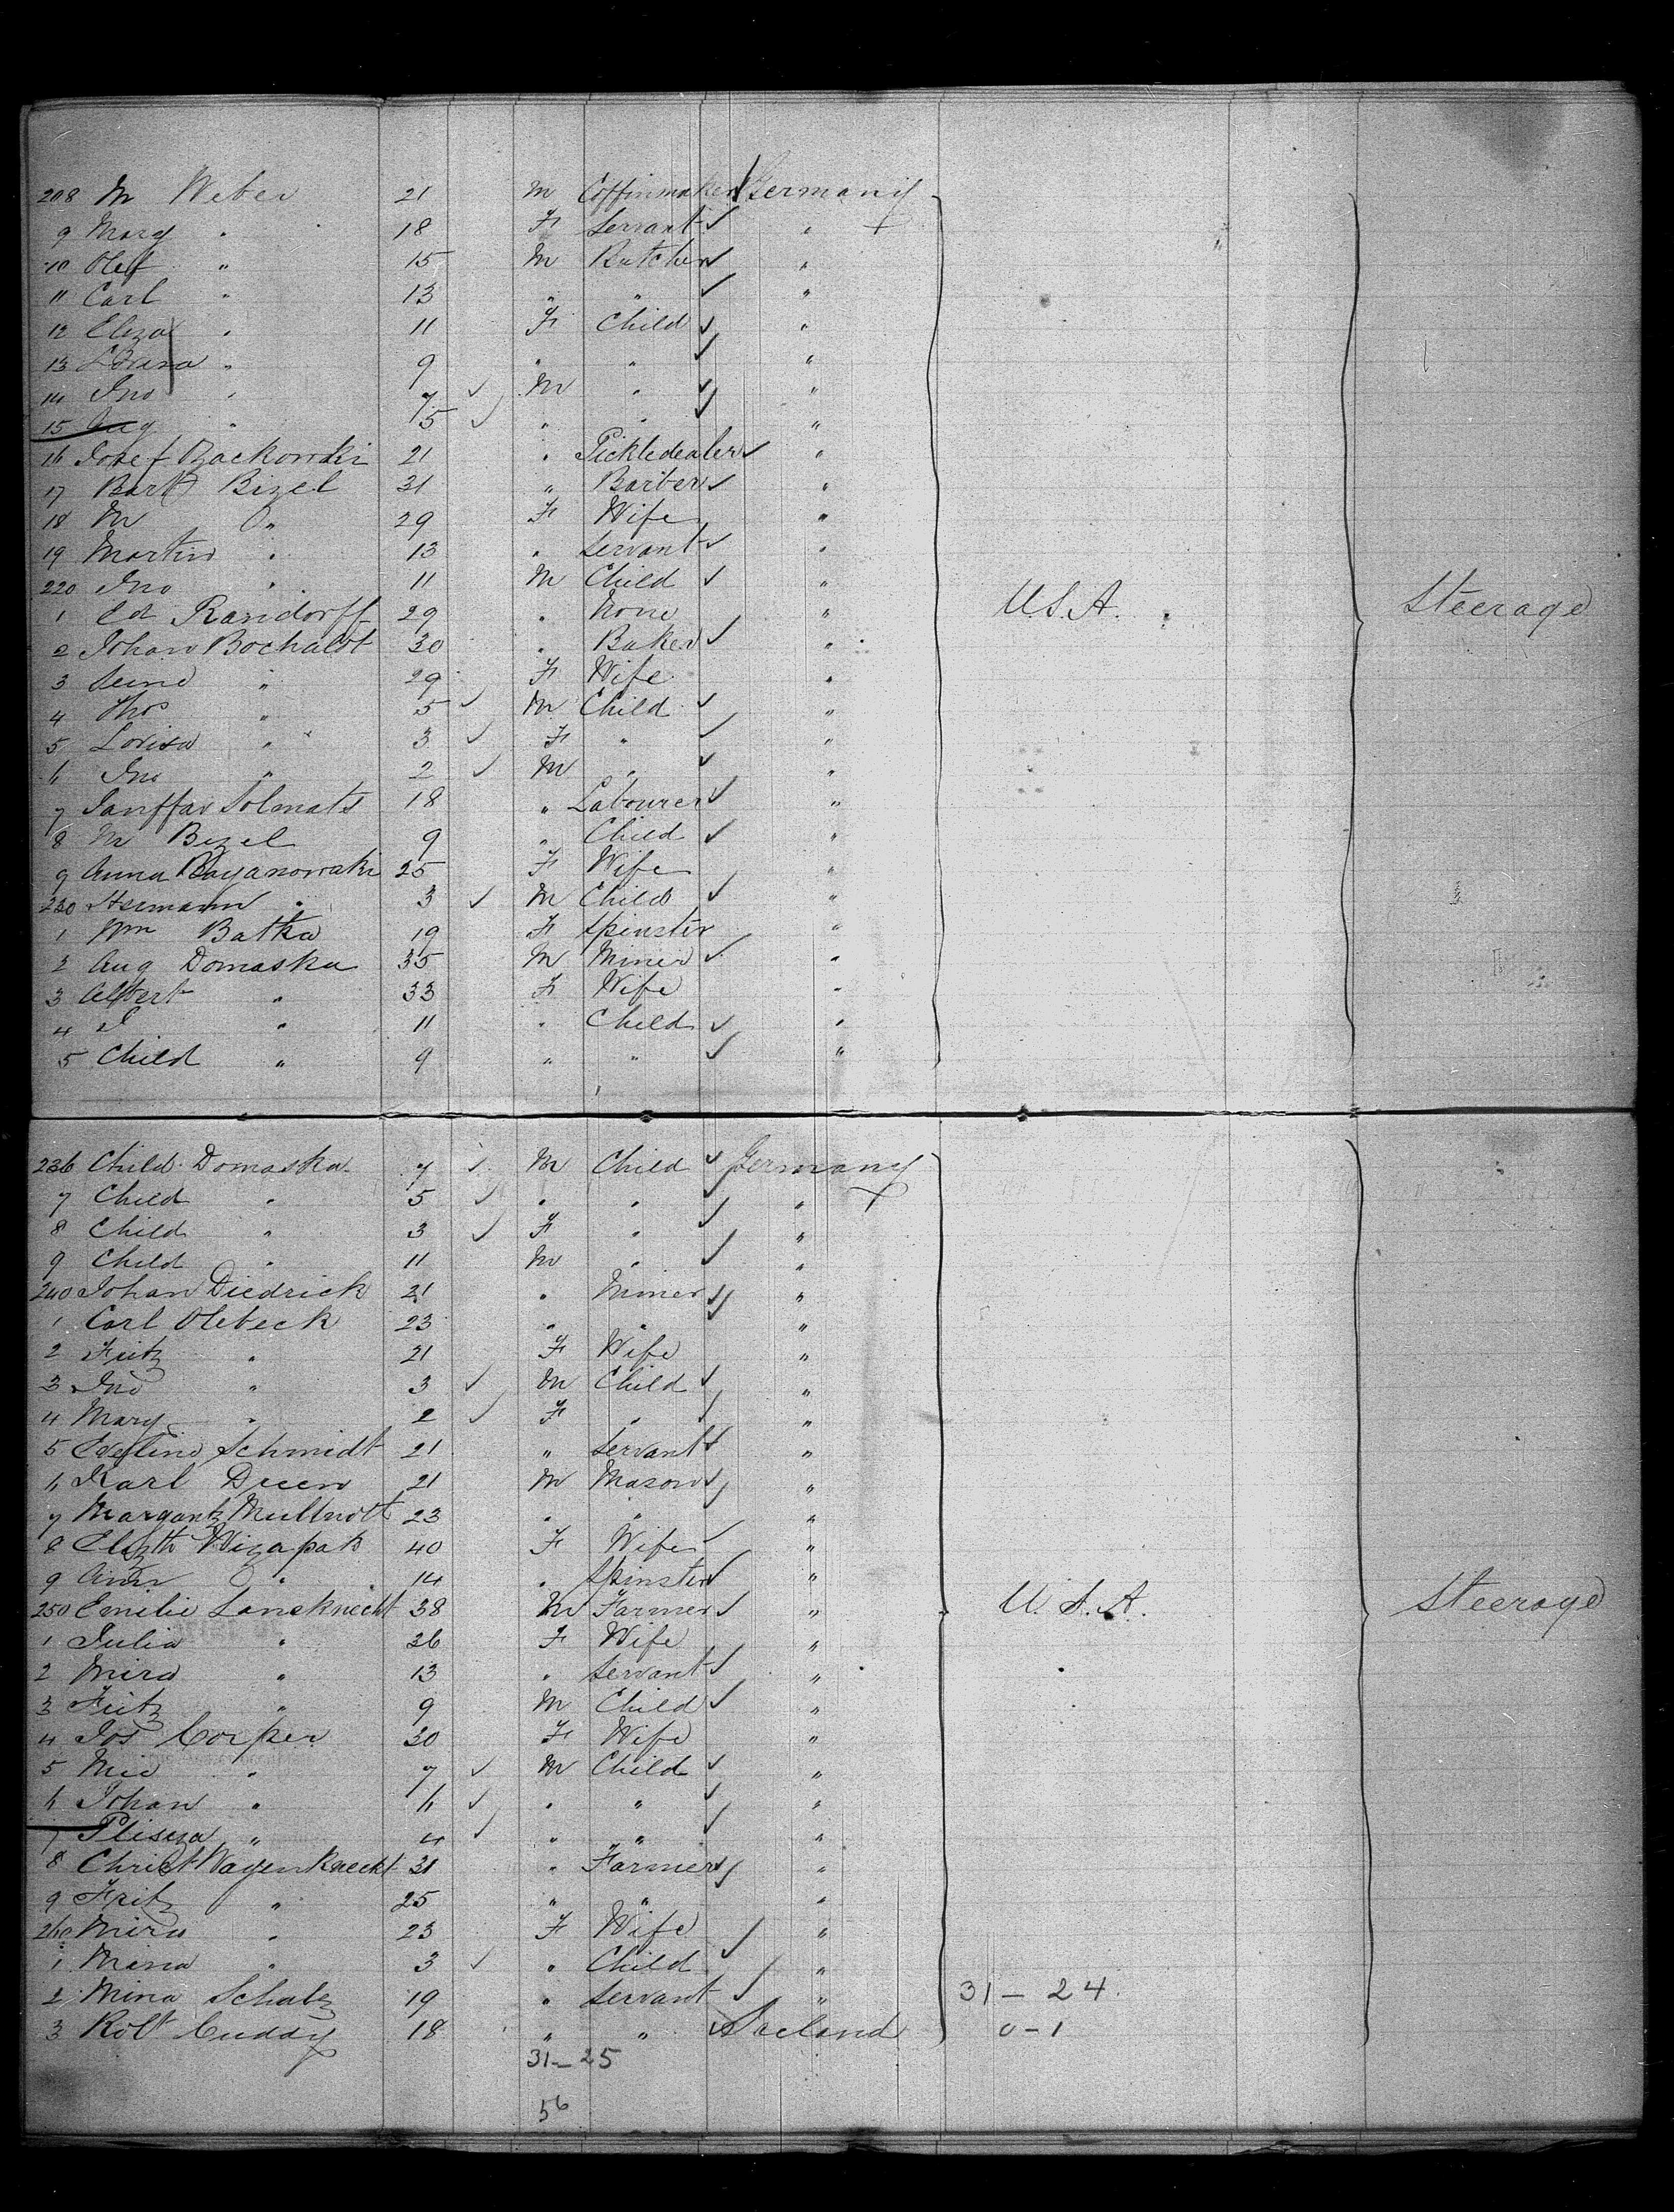 208 M Weber 21 M Coffinmaker Germany
9 Mary " 18 F Servant "
10 Olef " 15 M Butcher "
11 Carl " 13 " " "
12 Eliza " 11 F Child "
13 Lovisa " 9 " " "
14 Jno " 7 M " "
15 Aug " 5 " " "
16 Josef 21 " Pickledealer "
17 Bart Bizel 31 " Barber "
18 M " 29 F Wife "
19 Martin " 13 " Servant "
220 Jno " 11 M Child "
1 Ed Randorff 29 " None " U.S.A. Steerage
2 Johan Bochaldt 30 " Baker "
3 " 29 F Wife "
4 Thos " 5 M Child "
5 Lovisa " 3 F " "
6 Jno " 2 M " "
7 Solmats 18 " Labourer "
8 M Bizel 9 " Child "
9 Anna 25 F Wife "
230 Hermann " 3 M Child "
1 Wm Batka 19 F Spinster "
2 Aug Domaska 35 M Miner "
3 Albert " 33 F Wife "
4 " 11 " Child "
5 Child " 9 " " "
236 Child Domaska 7 M Child Germany
7 Child " 5 " " "
8 Child " 3 F " "
9 Child " 11 M " "
240 Johan Diedrick 21 " Miner "
1 Carl Olebeck 23 " " "
2 Fritz " 21 F Wife "
3 Jno " 3 M Child "
4 Mary " 2 F " "
5 Schmidt 21 " Servant "
6 Karl Dreen 21 M Mason "
7 23 " " "
8 Elizth 40 F Wife "
9 Ann " 14 " Spinster "
250 Emilie Lansknecht 38 M Farmer " U.S.A. Steerage
1 Julia " 36 F Wife "
2 Mira " 13 " Servant "
3 Fritz " 9 M Child "
4 Jos Corper 30 F Wife "
5 " 7 M Child "
6 Johan " 6 " " "
7 " 4 " " "
8 Christ Wagenknecht 31 " Farmer "
9 Fritz " 25 " " "
260 Mira " 23 F Wife "
1 Mina " 3 " Child "
2 Mina Schulz 19 " Servant " 31 - 24
3 Robt Cuddy 18 " " Ireland 0 - 1
31 - 25
56